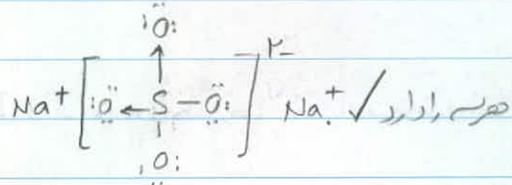 :Ö:
↑
Na⁺ [:Ö ← S – Ö:]²⁻ Na⁺ ✓ هر سه را دارد
|
:O: